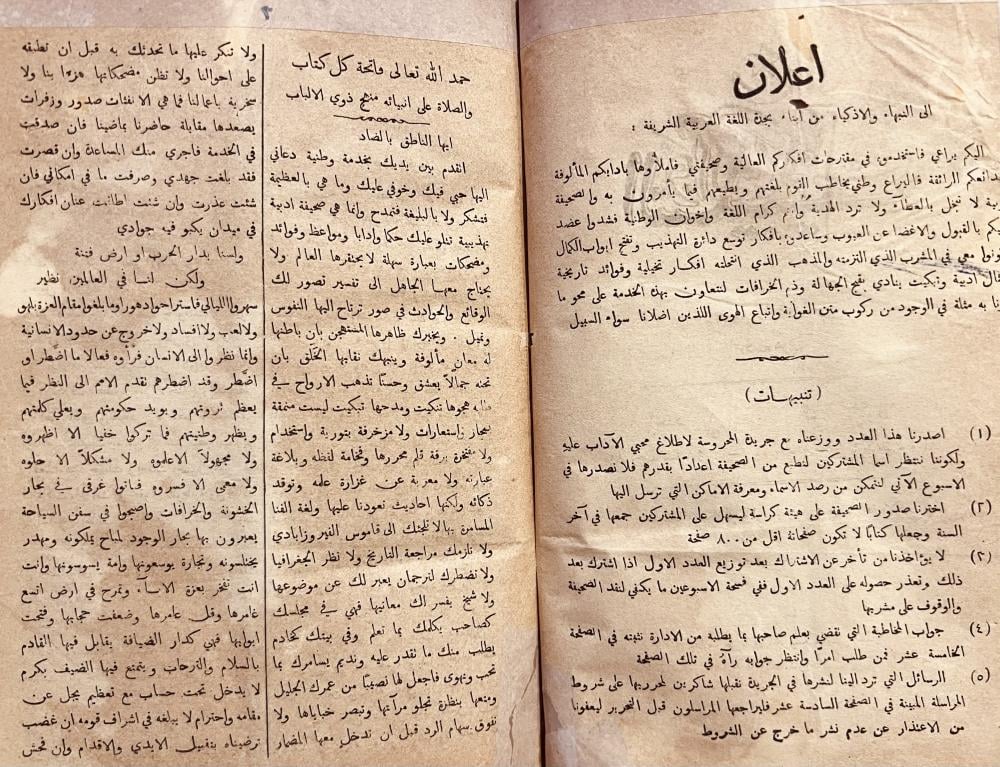 اعلان
الى النبهاء والاذكياء من ابناء بجدة اللغة العربية الشريفة :
اليكم يراعي فاستخدموه في مقترحات افكاركم العالية وصحيفتي فاملأوها بادابكم المألوفة
بدائعكم الرائقة فاليراع وطني يخاطب القوم بلغتهم ويطيعهم فيما يأمرون به والصحيفة
بية لا تبخل بالعطاء ولا ترد الهدية وانتم كرام اللغة واخوان الوطنية فشدوا عضد
يكم بالقبول والاغضا عن العيوب وساعدوه بافكار توسع دائرة التهذيب وتفتح ابواب الكمال
ونوا معي في المشرب الذي التزمته والمذهب الذي انتحلته افكار تخيلية وفوائد تاريخية
ثال ادبية وتبكيت ينادي بقبح الجهالة وذم الخرافات لنتعاون بهذه الخدمة على محو ما
نا به مثلة في الوجود من ركوب متن الغواية واتباع الهوى اللذين اضلانا سواء السبيل
(تنبيهات)
(١) اصدرنا هذا العدد ووزعناه مع جريدة المحروسة لاطلاع محبي الآداب عليه
ولكوننا ننتظر اسما المشتركين لنطبع من الصحيفة اعدادًا بقدرهم فلا نصدرها في
الاسبوع الآتي لنتمكن من رصد الاسماء ومعرفة الاماكن التي ترسل اليها
(٢) اخترنا صدور الصحيفة على هيئة كراسة ليسهل على المشتركين جمعها في آخر
السنة وجعلها كتابًا لا تكون صفحاته اقل من ٨٠٠ صفحة
(٣) لا يؤاخذنا من تأخر عن الاشتراك بعد توزيع العدد الاول اذا اشترك بعد
ذلك وتعذر حصوله على العدد الاول ففي فسحة الاسبوعين ما يكفي لنقد الصحيفة
والوقوف على مشربها
(٤) جواب المخاطبة التي تقضي بعلم صاحبها بما يطلبه من الادارة نثبته في الصفحة
الخامسة عشر فمن طلب امرًا وانتظر جوابه رآه في تلك الصفحة
(٥) الرسائل التي ترد الينا لنشرها في الجريدة نقبلها شاكرين لمحرريها على شروط
المراسلة المبينة في الصفحة السادسة عشر فليراجعها المراسلون قبل التحرير ليعفونا
من الاعتذار عن عدم نشر ما خرج عن الشروط
٢
حمد الله تعالى فاتحة كل كتاب
والصلاة على انبيائه منهج ذوي الالباب
ايها الناطق بالضاد
اتقدم بين يديك بخدمة وطنية دعاني
اليها حبي فيك وخوفي عليك وما هي بالعظيمة
فتشكر ولا بالبليغة فتمدح وانما هي صحيفة ادبية
تهذيبية تتلو عليك حكما وادابا ومواعظ وفوائد
ومضحكات بعبارة سهلة لا يحتقرها العالم ولا
يحتاج معها الجاهل الى تفسير تصور لك
الوقائع والحوادث في صور ترتاح اليها النفوس
وتميل . ويخبرك ظاهرها المستهجن بان باطنها
له معان مألوفة وينبهك نقابها الخَلَق بان
تحته جمالاً يعشق وحسنًا تذهب الارواح في
طلبه هجوها تنكيت ومدحها تبكيت ليست منمقة
بمجاز واستعارات ولا مزخرفة بتورية واستخدام
ولا مفتخرة برقة قلم محررها وفخامة لفظه وبلاغة
عبارته ولا معربة عن غزارة علمه وتوقد
ذكائه ولكنها احاديث تعودنا عليها ولغة الفنا
المسامرة بها لا تلجئك الى قاموس الفيروزابادي
ولا تلزمك مراجعة التاريخ ولا نظر الجغرافيا
ولا تضطرك لترجمان يعبر لك عن موضوعها
ولا شيخ يفسر لك معانيها فهي في مجلسك
كصاحب يكلمك بما تعلم وفي بيتك كخادم
يطلب منك ما تقدر عليه ونديم يسامرك بما
تحب وتهوى فاجعل لها نصيبًا من عمرك الجليل
ومتعها بنظرة تجلو مرآتها وتبصر خباياها ولا
تفوق سهام الرد قبل ان تدخل معها المضمار
ولا تنكر عليها ما تحدثك به قبل ان تطبقه
على احوالنا ولا تظن مضحكاتها هزءا بنا ولا
سخرية باعمالنا فما هي الا نفثات صدور وزفرات
يصعدها مقابلة حاضرنا بماضينا فان صدقت
في الخدمة فاجري منك المساعدة وان قصرت
فقد بلغت جهدي وصرفت ما في امكاني فان
شئت عذرت وان شئت اطلقت عنان افكارك
في ميدان يكبو فيه جوادي
ولسنا بدار الحرب او ارض فتنة
ولكن لنا في العالمين نظير
سهروا الليالي فاستراحوا دهورا وما بلغوا مقام العزة بلهو
ولا لعب ولا افساد ولا خروج عن حدود الانسانية
وانما نظروا الى الانسان فرأوه فعالا ما اضطر او
اضُطر وقد اضطرهم تقدم الامم الى النظر فيما
يعظم ثروتهم ويويد حكومتهم ويعلي كلمتهم
ويظهر وطنيتهم فما تركوا خفيا الا اظهروه
ولا مجهولاً الا علموه ولا مشكلاً الا حلوه
ولا معمى الا فسروه فباتوا غرقى في بحار
الخشونة والخرافات واصبحوا في سفن السياحة
يعبرون بها بحار الوجود لمباح يملكونه ومهدر
يختلسونه وتجارة يوسعونها وامة يسوسونها وانت
انت تفخر بعزة الاسآء وتمرح في ارض اتسع
غامرها وقل عامرها وضعفت حجابها وفتحت
ابوابها فهي كدار الضيافة يقابل فيها القادم
بالسلام والترحاب ويتمتع فيها الضيف بكرم
لا يدخل تحت حساب مع تعظيم يجل عن
مقامه واحترام لا يبلغه في اشراف قومه ان غضب
ترضيناه بتقبيل الايدي والاقدام وان فحش